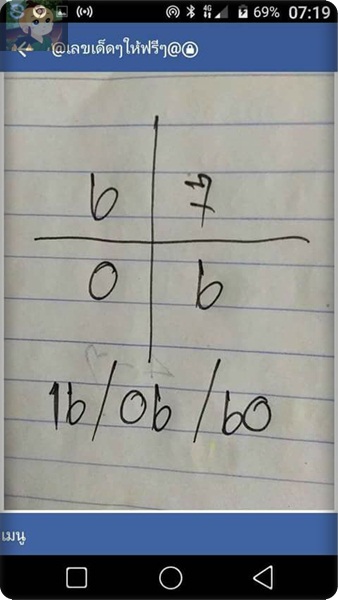 4G 69% 07:19
@เลขเด็ดๆให้ฟรีๆ@
6
0 6
16/06/60
เมนู